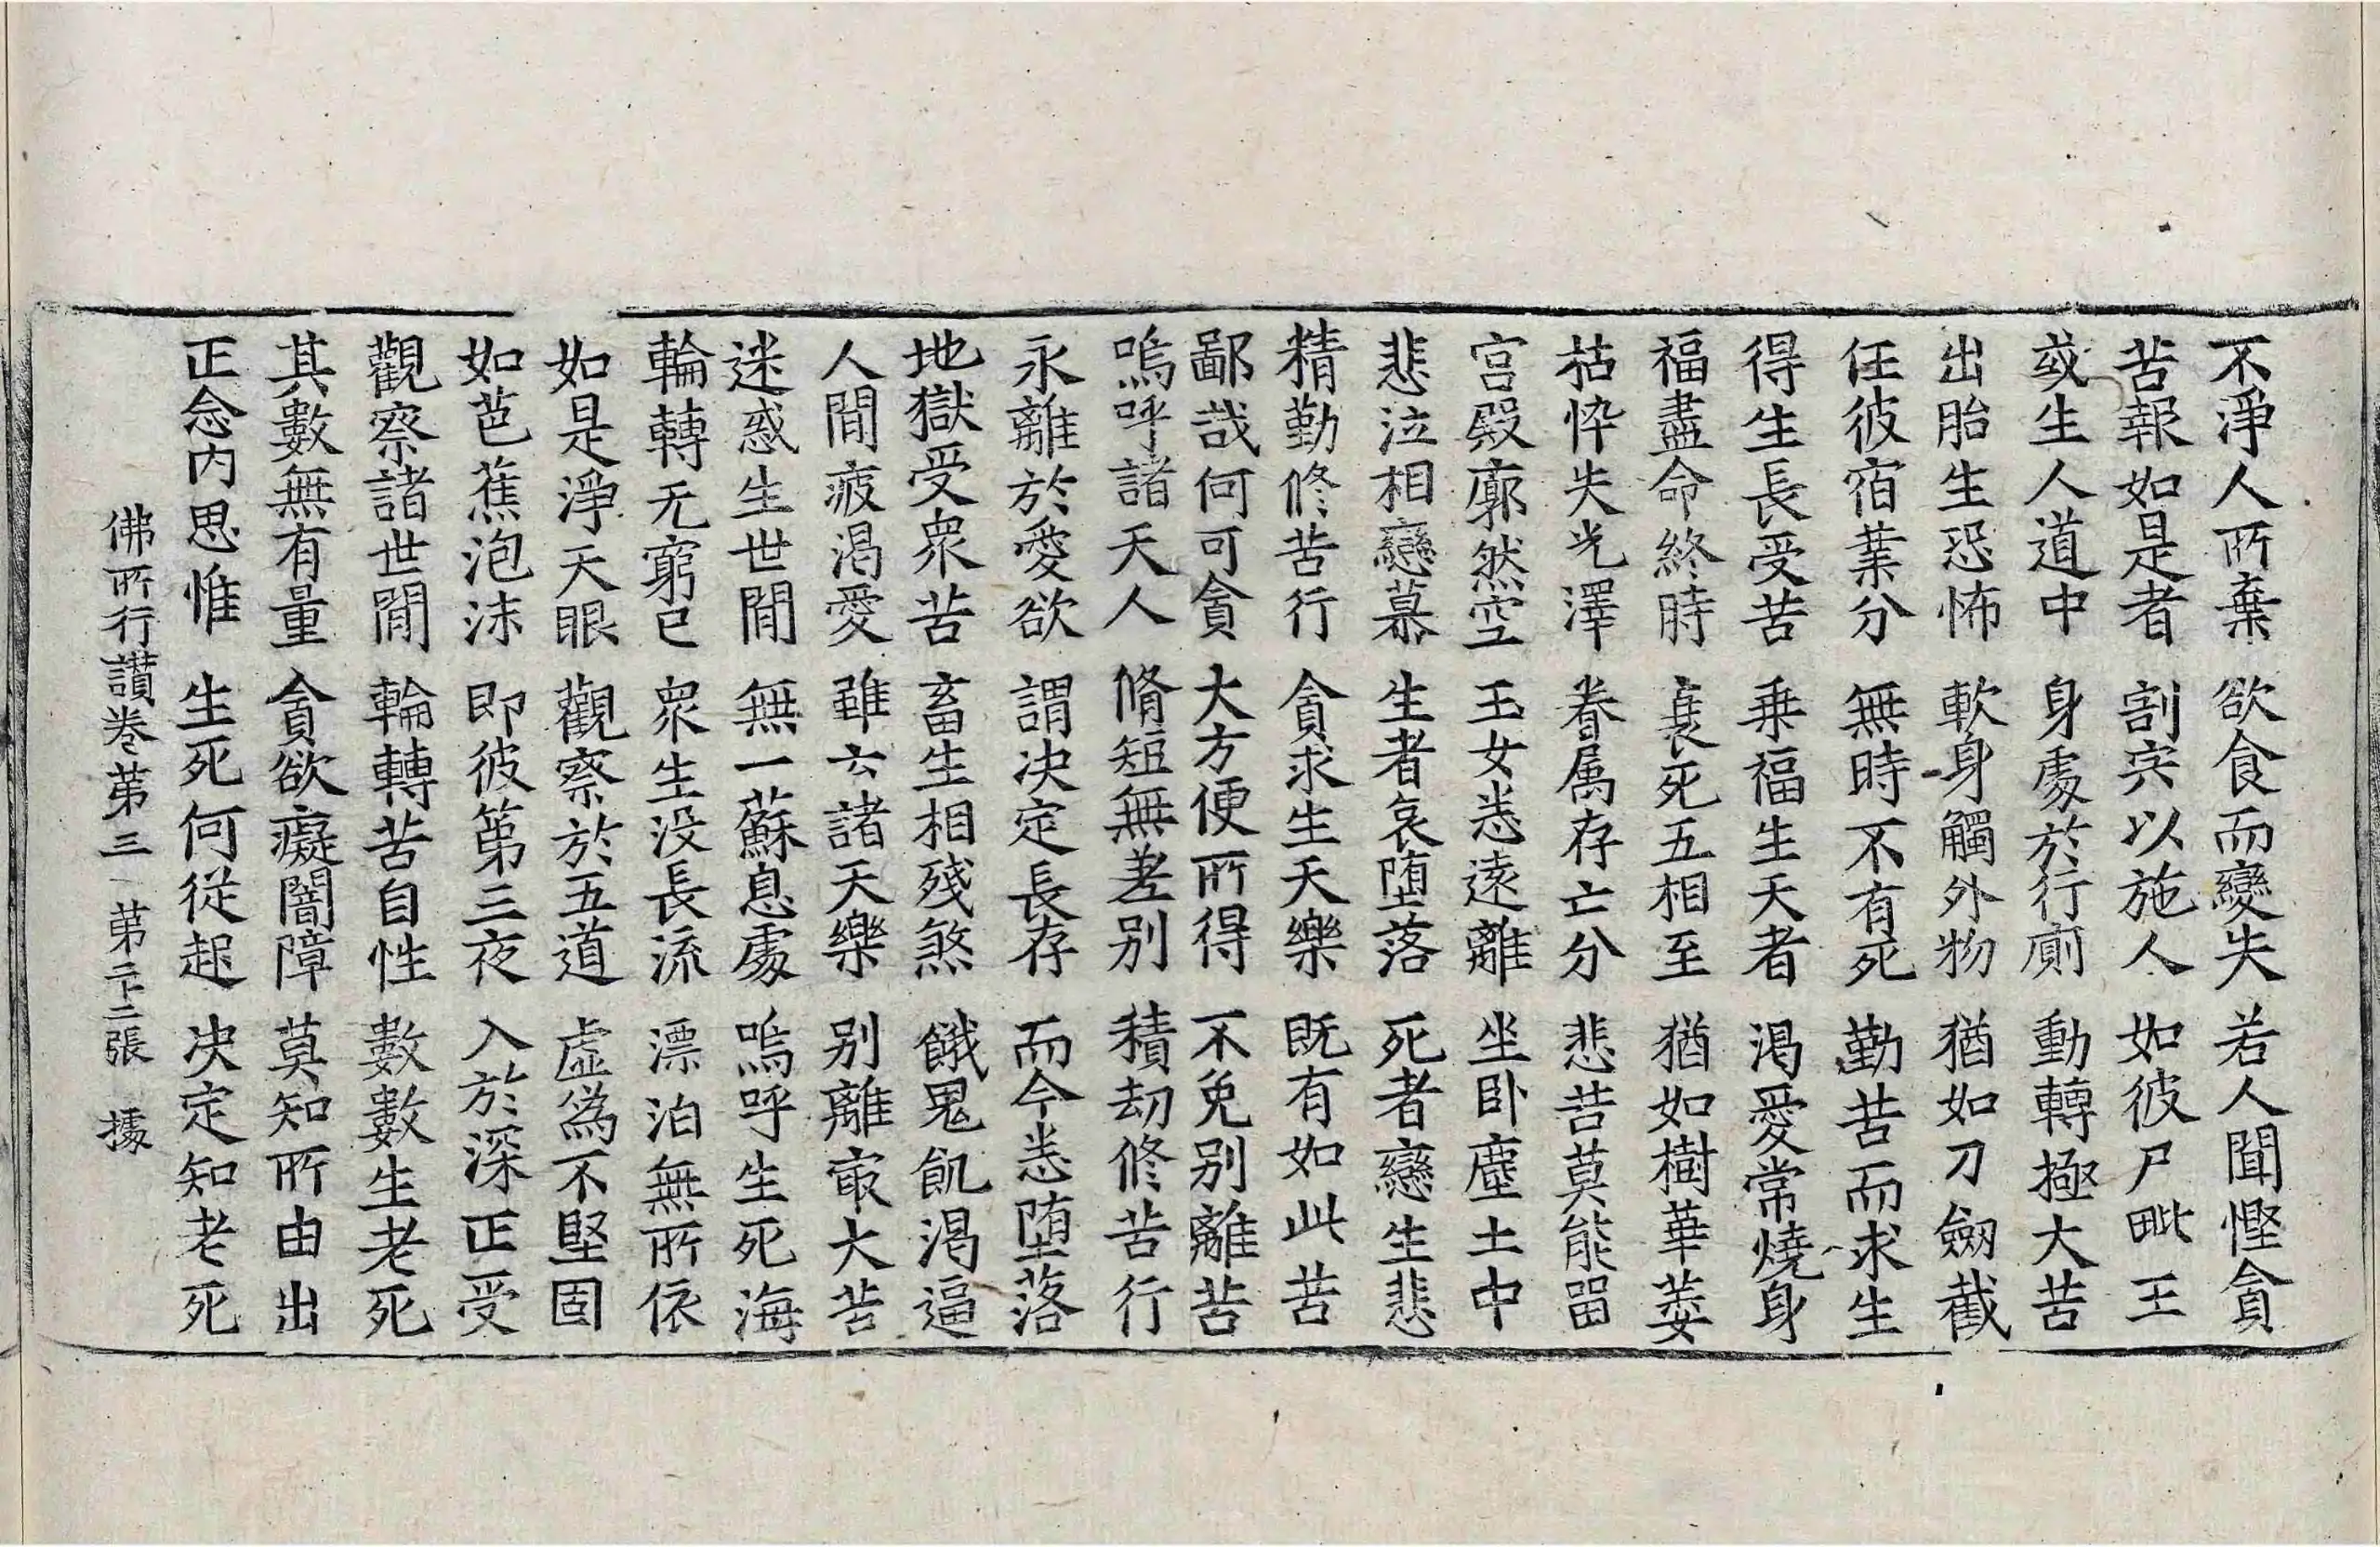 不淨人所棄 欲食而變失 若人聞慳貪
苦報如是者 割宍以施人 如彼尸毗王
或生人道中 身處於行廁 動轉極大苦
出胎生恐怖 軟身觸外物 猶如刀劒截
任彼宿業分 無時不有死 勤苦而求生
得生長受苦 乗福生天者 渴愛常燒身
福盡命終時 衰死五相至 猶如樹華萎
枯悴失光澤 眷属存亡分 悲苦莫能留
宮殿廓然空 王女悉遠離 坐臥塵土中
悲泣相戀慕 生者哀堕落 死者戀生悲
精勤修苦行 貪求生天樂 既有如此苦
鄙哉何可貪 大方便所得 不免別離苦
嗚呼諸天人 脩短無差別 積劫修苦行
永離於愛欲 謂决定長存 而今悉堕落
地獄受衆苦 畜生相殘煞 餓鬼飢渴逼
人間疲渴愛 雖云諸天樂 別離㝡大苦
迷惑生世間 無一蘇息處 嗚呼生死海
輪轉无窮已 衆生没長流 漂泊無所依
如是淨天眼 觀察於五道 虛爲不堅固
如芭蕉泡沫 即彼第三夜 入於深正受
觀察諸世間 輪轉苦自性 數數生老死
其數無有量 貪欲癡闇障 莫知所由出
正念內思惟 生死何從起 决定知老死
佛所行讃卷第三 第二十二張 據